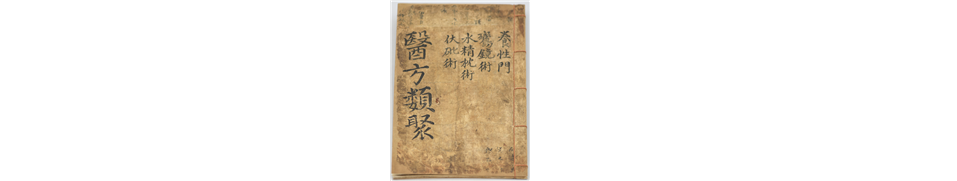 養性門
鴻鏡術
水精枕術
伏砒術
醫方類聚